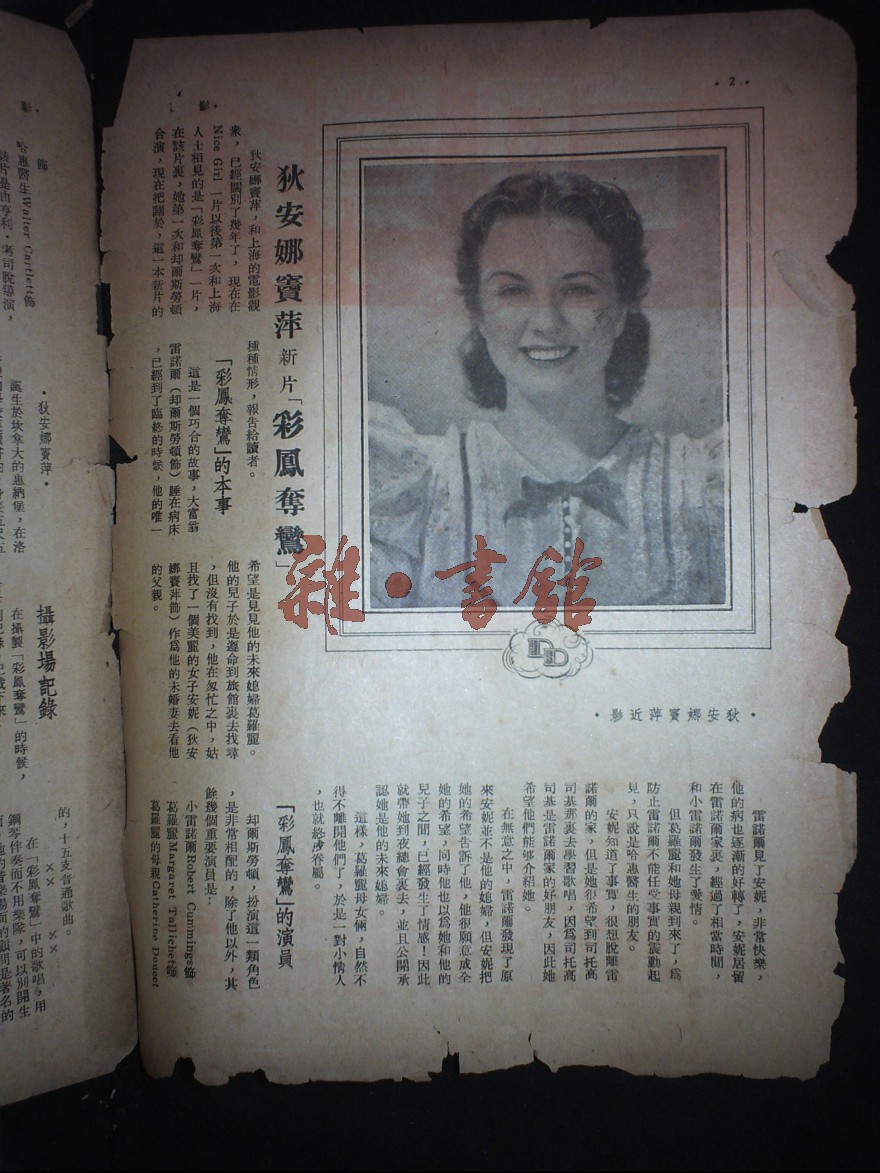 ・2・
影・
狄安娜寶萍新片「彩鳳奪鸞」
狄安娜寶萍，和上海的電影觀
衆，已經闊別了幾年了，現在在
Nice Girl 一片以後第一次和上海
人士相見的是「彩鳳奪鸞」一片，
在該片裏，她第一次和却爾斯勞頓
合演，現在把關於，這一本新片的
種種情形，報告給讀者。
「彩鳳奪鸞」的本事
這是一個巧合的故事，大富翁
雷諾爾（却爾斯勞頓飾）睡在病床
，已經到了臨終的時候，他的唯一
希望是見見他的未來媳婦葛羅麗。
他的兒子於是遵命到旅館裏去找尋
，但沒有找到，他在匆忙之中，姑
且找了一個美麗的女子安妮（狄安
娜寶萍飾）作爲他的未婚妻去看他
的父親。
・狄安娜寶萍近影・
DD
雷諾爾見了安妮，非常快樂，
他的病也逐漸的好轉了，安妮居留
在雷諾爾家裏，經過了相當時間，
和小雷諾爾發生了愛情。
但葛羅麗和她母親到來了，爲
防止雷諾爾不能任受事實的震動起
見，只說是哈惠醫生的朋友。
安妮知道了事實，很想脫離雷
諾爾的家，但是她很希望到司托高
司基那裏去學習歌唱，因爲司托高
司基是雷諾爾家的好朋友，因此她
希望他們能够介紹她。
在無意之中，雷諾爾發現了原
來安妮並不是他的媳婦，但安妮把
她的希望告訴了他，他很願意成全
她的希望，同時他也以爲她和他的
兒子之間，已經發生了情感！因此
就帶她到夜總會裏去，並且公開承
認她是他的未來媳婦。
這樣，葛羅麗母女倆，自然不
得不離開他們了，於是一對小情人
，也就終成眷屬。
「彩鳳奪鸞」的演員
却爾斯勞頓，扮演這一類角色
，是非常相配的，除了他以外，其
餘幾個重要演員是：
小雷諾爾Robert Cummings飾
葛羅麗Margaret Tallichet飾
葛羅麗的母親Catherine Doucet
飾
哈惠醫生Walter Cartlett飾
該片是由亨利・考司脫導演，
・狄安娜寶萍・
誕生於坎拿大的惠納堡，在洛
攝影場記錄
在攝製「彩鳳奪鸞」的時候，
的，十五支普通歌曲。
×　×
×　×
在「彩鳳奪鸞」中的歌唱，用
鋼琴伴奏而不用樂隊，可以別開生
雜・書館